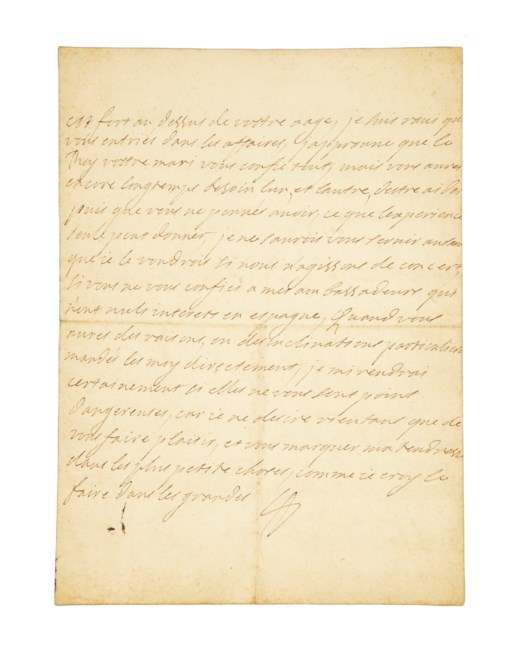 est fort au dessus de vostre aage, je suis ravis que
vous entriés dans les affaires, j'approuve que le
Roy vostre mari vous confie tout, mais vous aurés
encore longtemps besoin lun, et lautre, destre aidés
jouis que vous ne pouvés avoir, ce que lexperience
seule peut donner, je ne saurois vous servir autant
que ie le voudrois si nous nagissons de concert,
si vous ne vous confiés a mes ambassadeurs qui
nont nuls interets en espagne, Quand vous
aurés des raisons, ou des inclinations particulieres
mandés les moy directement, je mi rendrai
certainement si elles ne vous sont point
dangereuses, car ie ne desire rien tant que de
vous faire plaisir, et vous marquer ma tendresse
dans les plus petite choses, comme ie croy le
faire dans les grandes